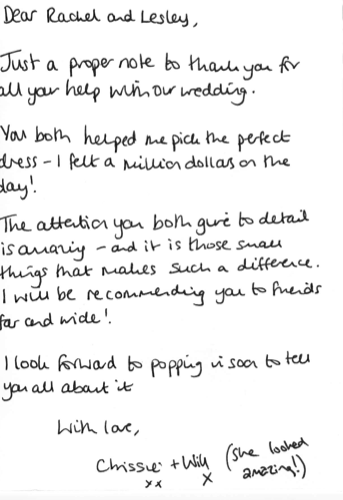 Dear Rachel and Lesley,
Just a proper note to thank you for
all your help with our wedding.
You both helped me pick the perfect
dress - I felt a million dollars on the
day!
The attention you both give to detail
is amazing - and it is those small
things that makes such a difference.
I will be recommending you to friends
far and wide!
I look forward to popping in soon to tell
you all about it
With love,
Chrissie + Will (She looked
xx x amazing!)